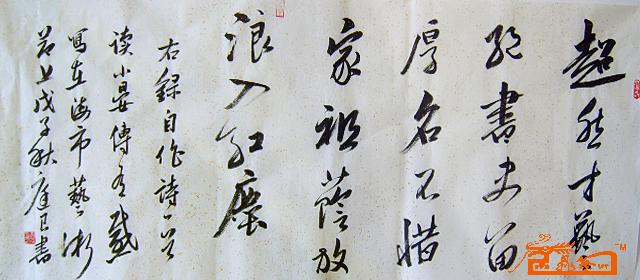 超然才藝
絕書史留
厚名不惜
家祖蔭放
浪入紅塵
右録自作詩一首
读小晏傳有感
寫在海市藝術
节上戊子秋書